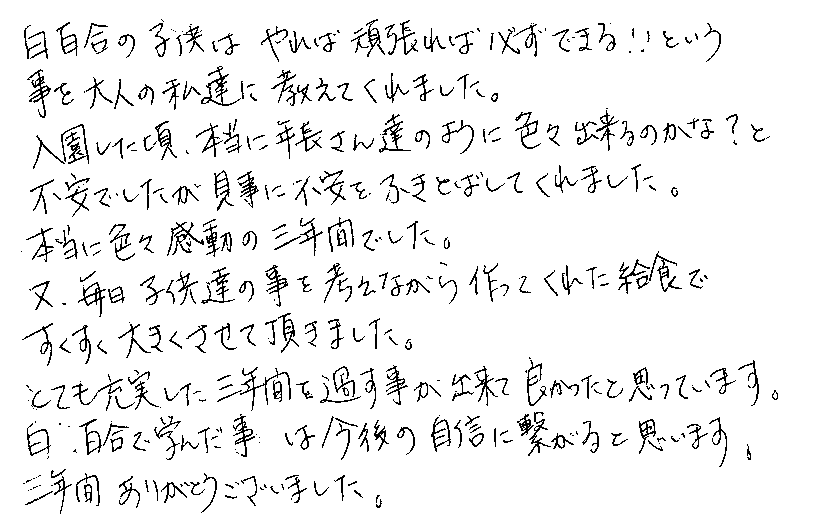 白百合の子供は やれば 頑張れば 必ずできる!!という
事を大人の私達に教えてくれました。
入園した頃、本当に年長さん達のように色々出来るのかな?と
不安でしたが見事に不安をふきとばしてくれました。
本当に色々感動の三年間でした。
又、毎日子供達の事を考えながら作ってくれた給食で
すくすく大きくさせて頂きました。
とても充実した三年間を過す事が出来て良かったと思っています。
白百合で学んだ事は今後の自信に繋がると思います。
三年間ありがとうございました。